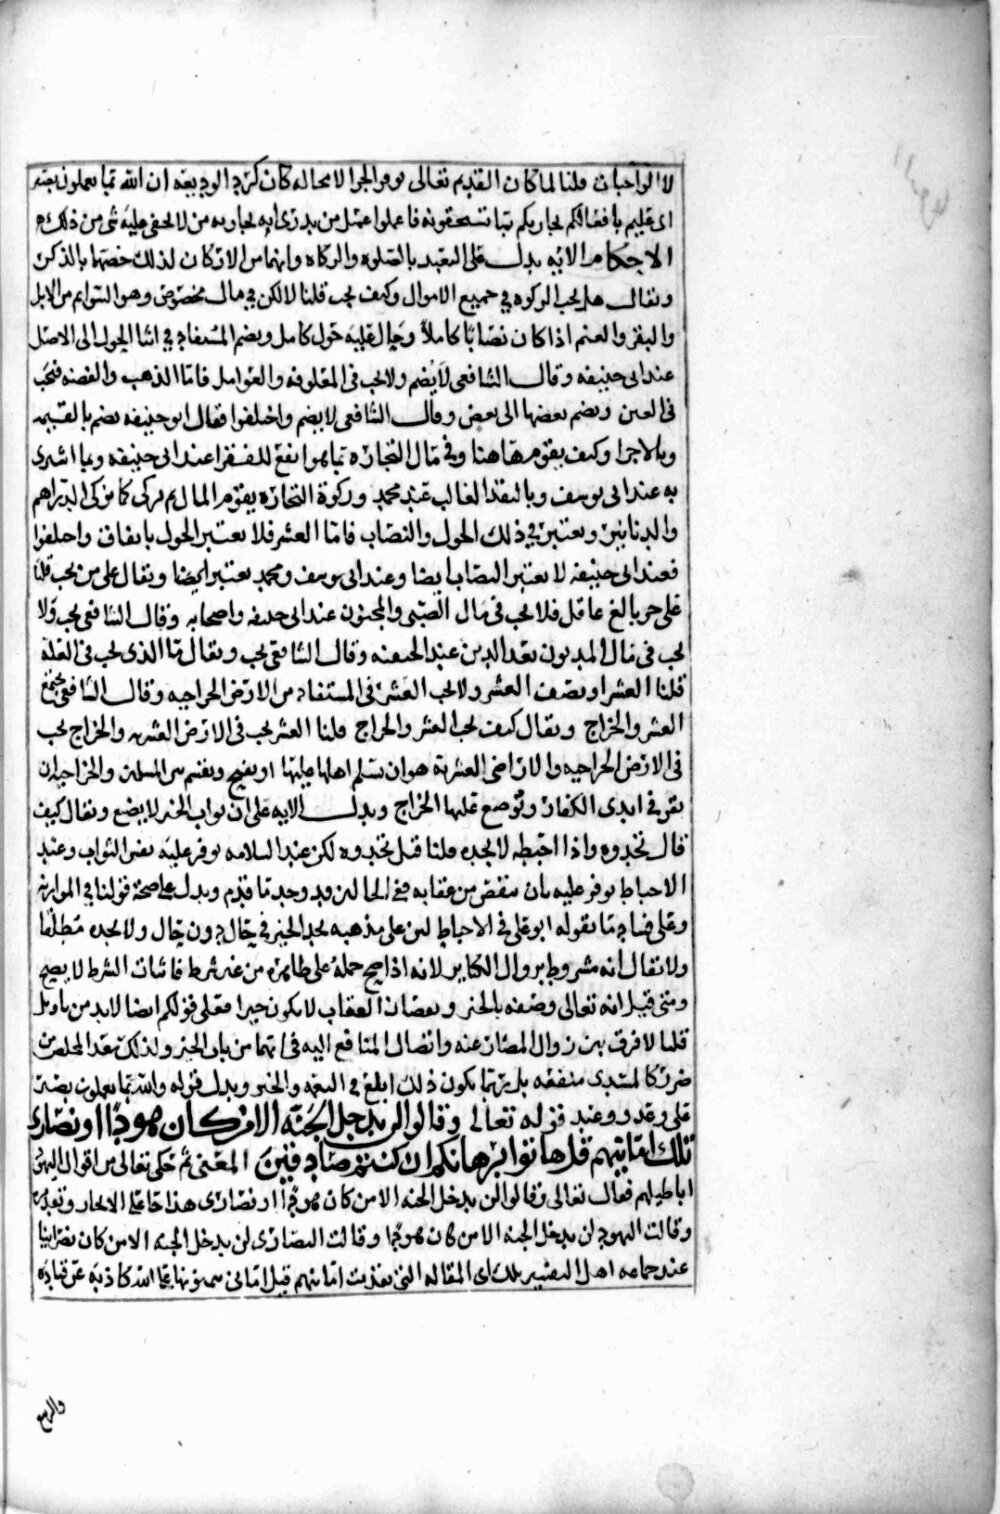 لا الواجبات قلنا لما كان القديم تعالى يوفر الجزا لا محاله كان كرد الوديعه ان الله بما يعملون بصير
اى عليم بافعالكم يجازيكم بما تستحقونه فاعملوا عمل من يدرى انه يجازيه من لا يخفى عليه شى من ذلك
الاحكام الايه يدل على التعبد بالصلوه والزكاه وانهما من الاركان لذلك خصهما بالذكر
ويقال هل يجب الزكوه في جميع الاموال وكيف يجب قلنا لا لكن في مال مخصوص وهو السوايم من الابل
والبقر والغنم اذا كان نصابا كاملا وحال عليه حول كامل ويضم المستفاد في اثنا الحول الى الاصل
عند ابى حنيفه وقال الشافعى لا يضم ولا يجب فى المعلوفه والعوامل فاما الذهب والفضه فتجب
فى العين ويضم بعضها الى بعض وقال الشافعى لا يضم واختلفوا فقال ابو حنيفه يضم بالقيمه
وبالاجزا وكيف يقوم هاهنا وفى مال التجاره بما هو انفع للفقرا عند ابى حنيفه وبما اشترى
به عند ابى يوسف وبالنقد الغالب عند محمد وزكوة التجاره يقوم المال ثم يزكى كما يزكى الدراهم
والدنانير ويعتبر في ذلك الحول والنصاب فاما العشر فلا يعتبر الحول باتفاق واختلفوا
فعند ابى حنيفه لا يعتبر النصاب ايضا وعند ابى يوسف ومحمد يعتبر ايضا ويقال على من يجب قلنا
على حر بالغ عاقل فلا يجب فى مال الصبى والمجنون عند ابى حنيفه واصحابه وقال الشافعى يجب ولا
يجب فى مال المديون بقدر الدين عند الحنفيه وقال الشافعى يجب ويقال ما الذى يجب فى الغلة
قلنا العشر او نصف العشر ولا يجب العشر فى المستفاد من الارض الخراجيه وقال الشافعى يجتمع
العشر والخراج ويقال كيف يجب العشر والخراج قلنا العشر يجب فى الارض العشريه والخراج يجب
فى الارض الخراجيه والاراضى العشرية هو ان يسلم اهلها عليها او يفتح ويقسم بين المسلمين والخراجيه ان
يقر فى ايدى الكفار وتوضع عليها الخراج ويدل الايه على ان ثواب الخير لا يضيع ويقال كيف
قال تجدوه واذا احبطه لا يجده قلنا قيل تجدوه لكن عند السلامه يوفر عليه نفس الثواب وعند
الاحباط يوفر عليه بان ينقص من عقابه ففى الحالين قد وجد ما قدم ويدل على صحة قولنا في الموازنه
وعلى فساد ما يقوله ابو على فى الاحباط لان على مذهبه يجد الخير في حال دون حال ولا يجده مطلقا
ولا يقال انه مشروط بزوال الكباير لانه اذا صح حمله على ظاهره من غير شرط فاثبات الشرط لا يصح
ومتى قيل انه تعالى وصفه بالخير ونقصان العقاب لا يكون خيرا فعلى قولكم ايضا لا بد من تاويل
قلنا لا فرق بين زوال المضار عنه واتصال المنافع اليه فى انهما من باب الخير ولذلك يعد المخلص من
ضرر كالمسدى منفعه بل ربما يكون ذلك ابلغ في النعمه والخير ويدل قوله والله بما يعملون بصير
على وعد ووعيد قوله تعالى وقالوا لن يدخل الجنة الا من كان هودا او نصارى
تلك امانيهم قل هاتوا برهانكم ان كنتم صادقين المعنى ثم حكى تعالى من اقوال اليهود
اباطيلهم فقال تعالى وقالوا لن يدخل الجنه الا من كان هودا او نصارى هذا حاصل الايجاز وتقديره
وقالت اليهود لن يدخل الجنه الا من كان هودا وقالت النصارى لن يدخل الجنه الا من كان نصرانيا
عند جماعه اهل التفسير تلك اى المقاله التى تقدمت امانيهم قيل امانى يتمنونها على الله كاذبه عن قتاده
والربيع